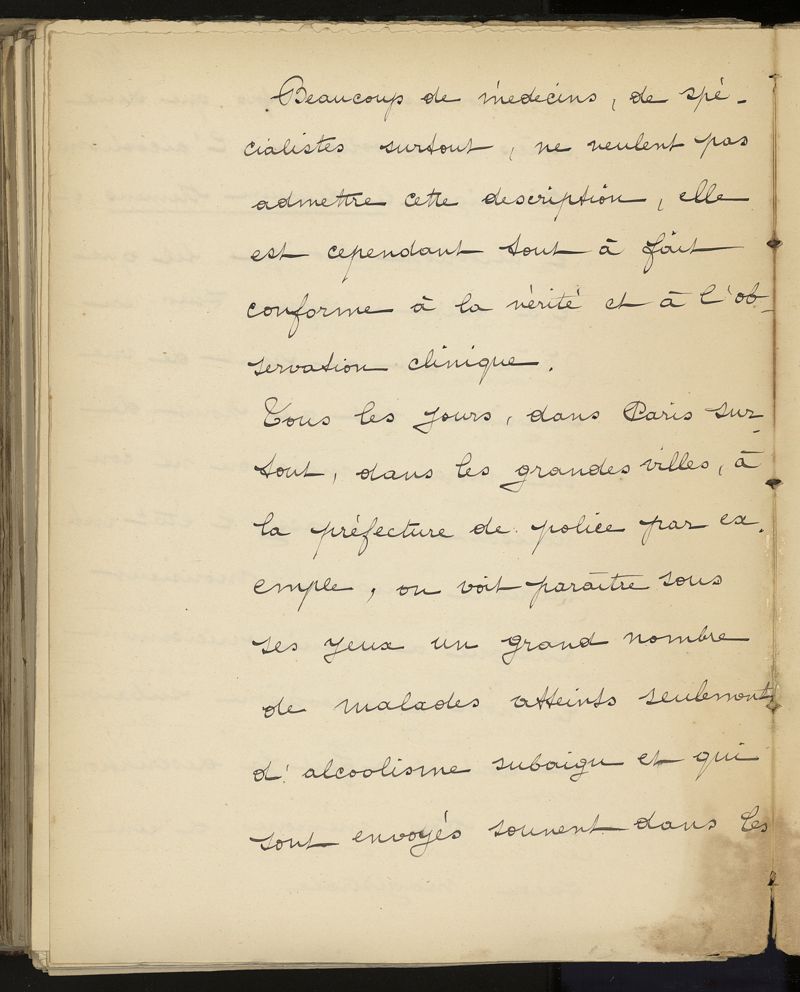 Beaucoup de médecins, de spé-
cialistes surtout, ne veulent pas
admettre cette description, elle
est cependant tout à fait
conforme à la vérité et à l'ob-
servation clinique.
Tous les jours, dans Paris sur-
tout, dans les grandes villes, à
la préfecture de police par ex-
emple, on voit paraître sous
ses yeux un grand nombre
de malades atteints seulement
d'alcoolisme subaigu et qui
sont envoyés souvent dans les